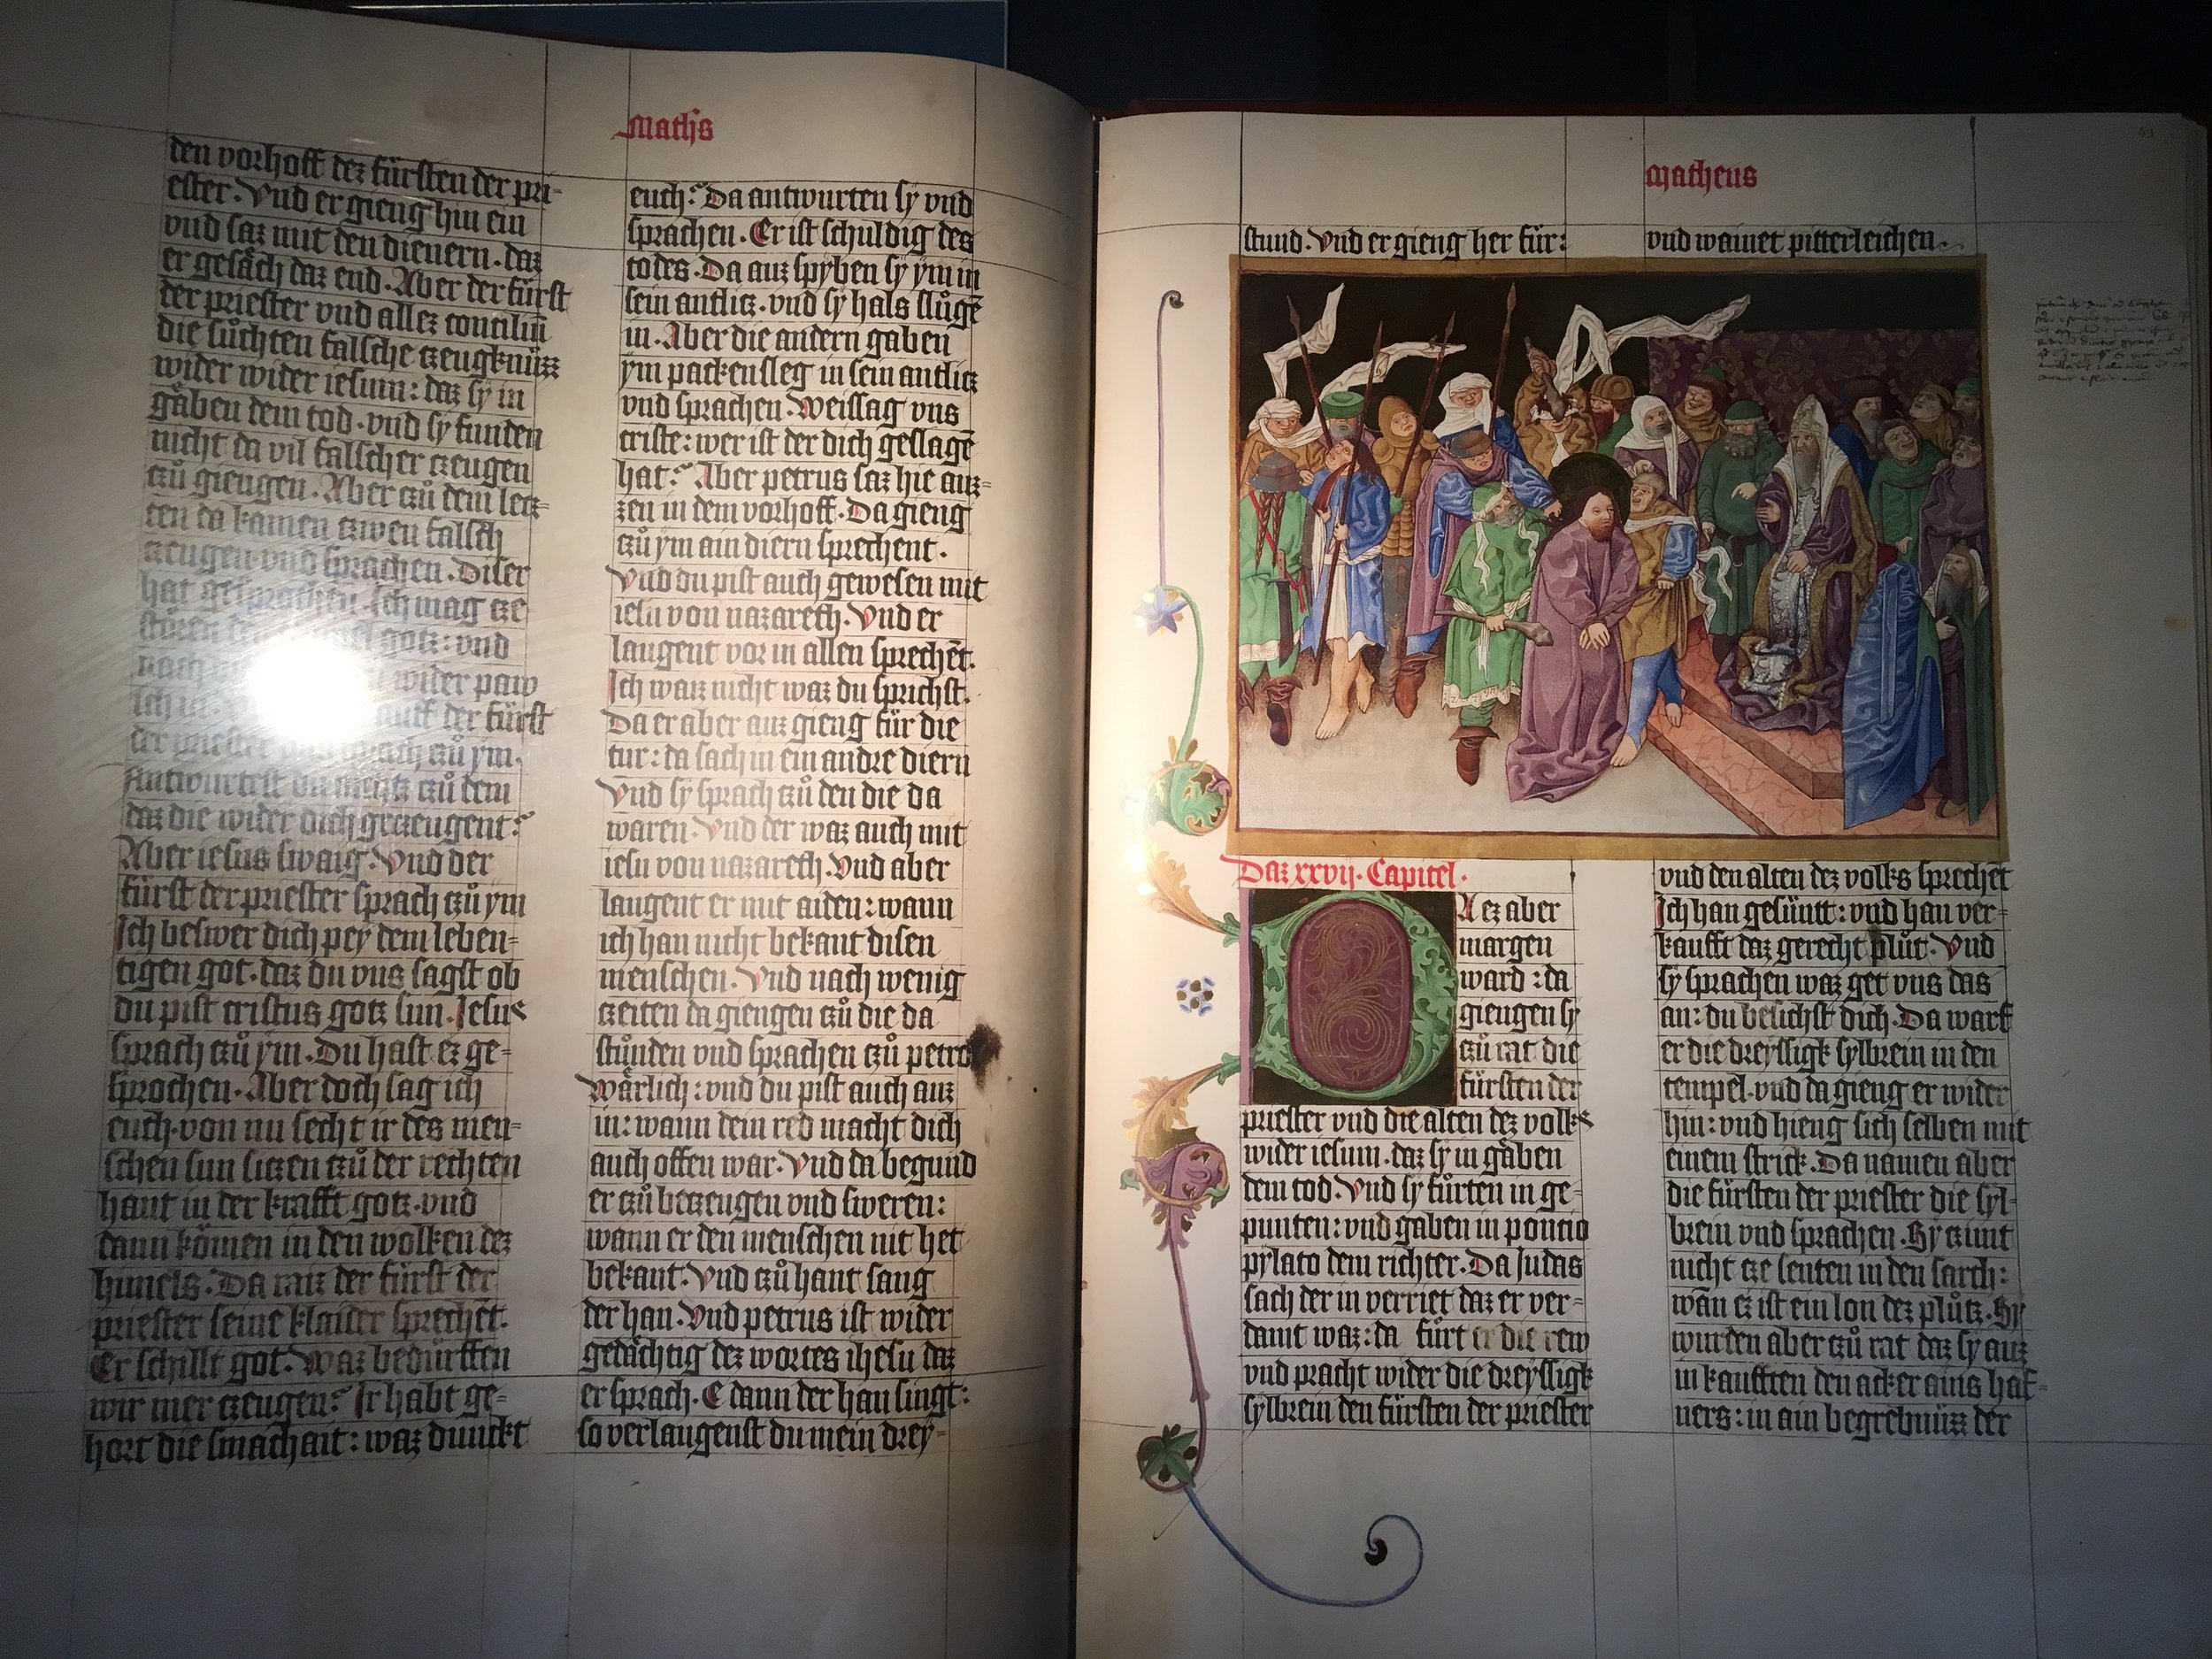 Maths
den vorhoff dez fürsten der pri-
ester. Vnd er gieng hin ein
vnd saz mit den dienern. daz
er gesäch daz end. Aber der fürst
der priester vnd allez conciliū
die sůchten falsche czeugknüzz
wider wider iesum: daz sy in
gäben dem tod. vnd sy funden
nicht da vil falscher czeugen
czů giengen. Aber czů dem lecz-
ten da kamen czwen falsch
czeugen vnd sprachen. Diser
hat gesprochen. Ich mag cze
stören den gotz: vnd
nach wider paw
Ich in. auff der fürst
der priester vnd sprach czů ym.
Antwurtest du nichtz czů dem
daz die wider dich geczeugent?
Aber iesus swaig. Vnd der
fürst der priester sprach czů ym
Ich beswer dich pey dem leben-
tigen got. daz du vns sagst ob
du pist cristus gotz sun. Jesus
sprach czů ym. Du hast ez ge-
sprochen. Aber doch sag ich
euch. von nu secht ir des men-
schen sun siczen czů der rechten
hant in der krafft gotz. vnd
dann kömen in den wolken dez
himels. Da raiz der fürst der
priester seine klaider sprechēt.
Er schillt got. Waz bedürffen
wir mer czeugen? Ir habt ge-
hort die smachait: waz dunckt
euch? Da antwurten sy vnd
sprachen. Er ist schuldig des
todes. Da auz spyben sy ym in
sein antlicz. vnd sy hals slůgē
in. Aber die andern gaben
ym packensleg in sein antlicz
vnd sprachen. Weissag vns
criste: wer ist der dich geslagē
hat? Aber petrus saz hie auz-
zen in dem vorhoff. Da gieng
czů ym ain diern sprechent.
Vnd du pist auch gewesen mit
iesu von nazareth. Vnd er
laugent vor in allen sprechēt.
Ich waiz nicht waz du sprichst.
Da er aber auz gieng für die
tur: da sach in ein andre diern
Vnd sy sprach czů den die da
waren. Vnd der waz auch mit
iesu von nazareth. Vnd aber
laugent er mit aiden: wann
ich han nicht bekant disen
menschen. Vnd nach wenig
czeiten da giengen czů die da
stůnden vnd sprachen czů petro
Wärlich: vnd du pist auch auz
in: wann dein red macht dich
auch offenwar. Vnd da begund
er czů beczeugen vnd sweren:
wann er den menschen nit het
bekant. Vnd czů hant sang
der han. Vnd petrus ist wider
gedächtig dez wortes ihesu daz
er sprach. E dann der han singt:
so verlaugenst du mein drey-
Matheus
stund. Vnd er gieng her für:
vnd wainet pitterleichen.
Daz xxvij. Capitel.
D
Aez aber
margen
ward: da
giengen sy
czů rat die
fürsten der
priester vnd die alten dez volks
wider iesum. daz sy in gäben
dem tod. Vnd sy fůrten in ge-
punten: vnd gaben in poncio
pylato dem richter. Da Judas
sach der in verriet daz er ver-
damt waz: da fürt er die rew
vnd pracht wider die dreyssigk
sylbrein den fürsten der priester
vnd den alten dez volks sprechēt
Ich han gesüntt: vnd han ver-
kaufft daz gerecht plůt. Vnd
sy sprachen waz get vns das
an: du besichst dich. Da warf
er die dreyssigk sylbrein in den
tempel. vnd da gieng er wider
hin: vnd hieng sich selben mit
einem strick. Da namen aber
die fürsten der priester die syl-
brein vnd sprachen. Sy czimt
nicht cze senten in den sarch:
wān ez ist ein lon dez plůtz. Sy
wurden aber czů rat daz sy auz
in kaufften den acker ains haf-
ners: in ain begrebnüzz der